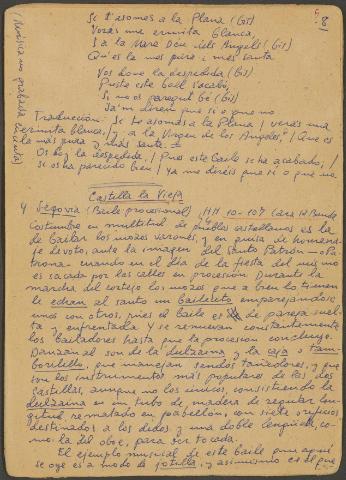 8
Si t'asomes a la Plana (Gis)
Voras una ermita blanca,
I a la Mare Deu dels Angels (Gis)
Qu'es la mes pura i mes santa
Vos done la despedida (Gis)
Puste este ball s'acabó,
Si vos a paregut be (Gis)
Ja'm direu que si o que no
Traducción: Si te asomas a la Plana / verás una
ermita blanca, / y a la Virgen de los Angeles, / Que es
la más pura y más santa. =
Os doy la despedida, / Pues este baile se ha acabado, /
si os ha parecido bien / ya me diréis que sí o que no.
Castilla la Vieja
4 Segovia (Baile procesional) HH 10-107 Cara 1ª Banda
Costumbre en multitud de pueblos castellanos es la
de bailar los mozos varones, y en guisa de homena-
je devoto, ante la imagen del Santo Patrón o Pa-
trona cuando en el día de la fiesta del mismo
es sacado por las calles en procesión. Durante la
marcha del cortejo los mozos que a bien lo tienen
le echan al santo un bailecito emparejándose
unos con otros, pues el baile es de pareja suel-
ta y enfrentada. Y se renuevan constantemente
los bailadores hasta que la procesión concluye.
Danzan al son de la dulzaina y la caja o tam-
borilillo, que manejan sendos tañedores, y que
son los instrumentos más populares de las dos
Castillas, aunque no los únicos, consistiendo la
dulzaina en un tubo de madera de regular lon-
gitud, rematado en pabellón, con siete orificios
destinados a los dedos y una doble lengüeta, co-
mo la del oboe, para ser tocada.
El ejemplo musical de este baile que aquí
se oye es a modo de jotilla, y asimismo es el que